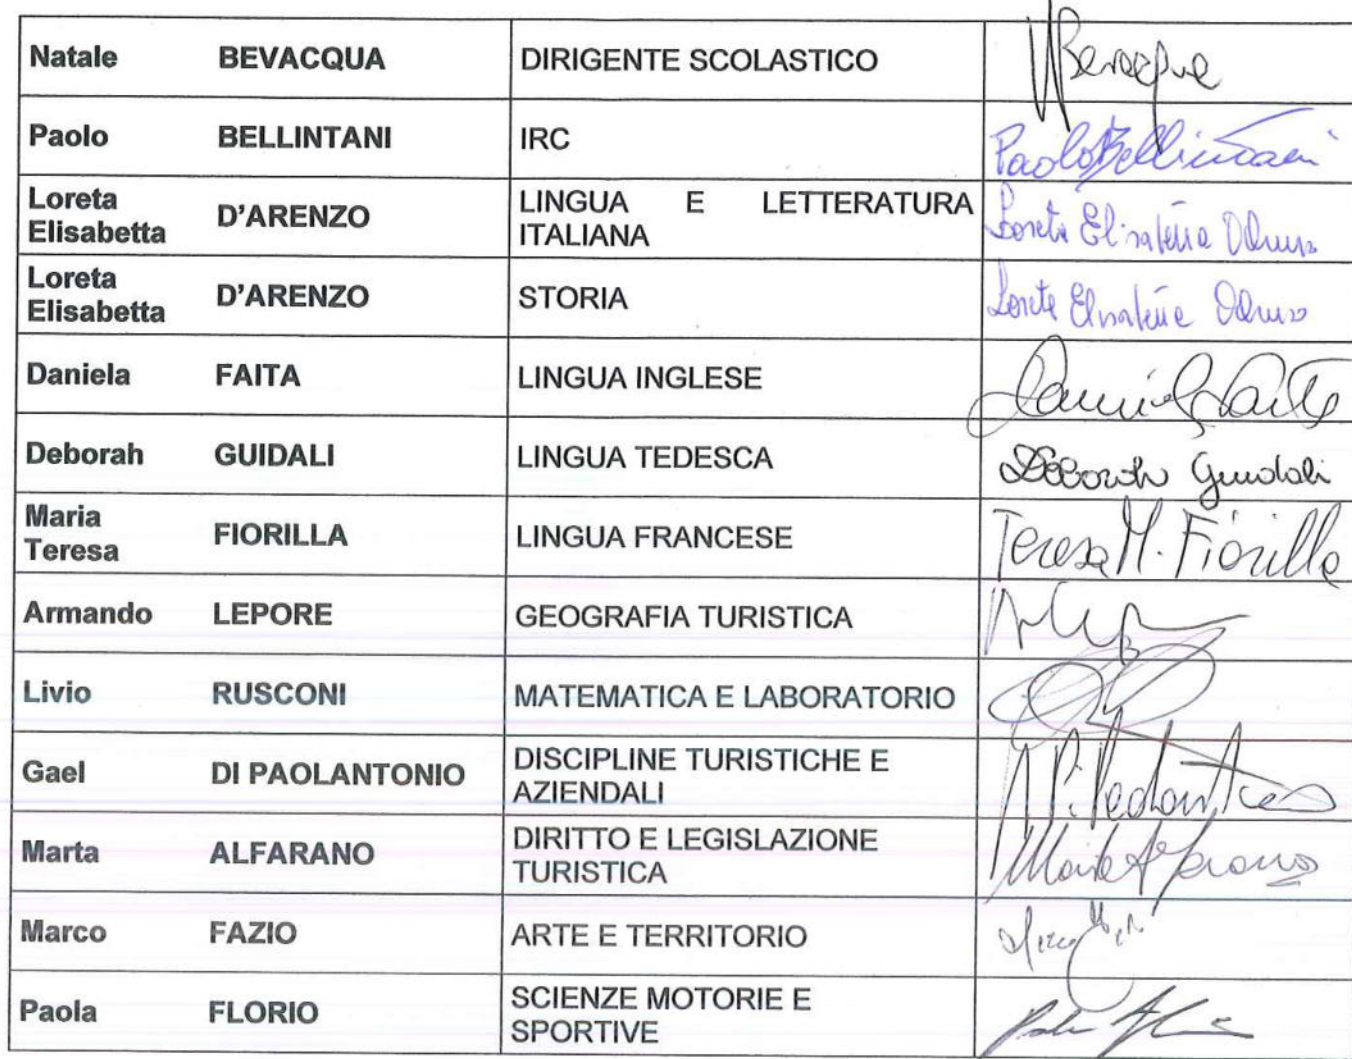 Natale BEVACQUA DIRIGENTE SCOLASTICO NBevacqua
Paolo BELLINTANI IRC Paolo Bellintani
Loreta
Elisabetta D'ARENZO LINGUA E LETTERATURA
ITALIANA Loreta Elisabetta
Loreta
Elisabetta D'ARENZO STORIA Loreta Elisabetta
Daniela FAITA LINGUA INGLESE Daniela Faita
Deborah GUIDALI LINGUA TEDESCA Deborah Guidali
Maria
Teresa FIORILLA LINGUA FRANCESE Teresa M. Fiorilla
Armando LEPORE GEOGRAFIA TURISTICA
Livio RUSCONI MATEMATICA E LABORATORIO
Gael DI PAOLANTONIO DISCIPLINE TURISTICHE E
AZIENDALI
Marta ALFARANO DIRITTO E LEGISLAZIONE
TURISTICA Marta Alfarano
Marco FAZIO ARTE E TERRITORIO
Paola FLORIO SCIENZE MOTORIE E
SPORTIVE